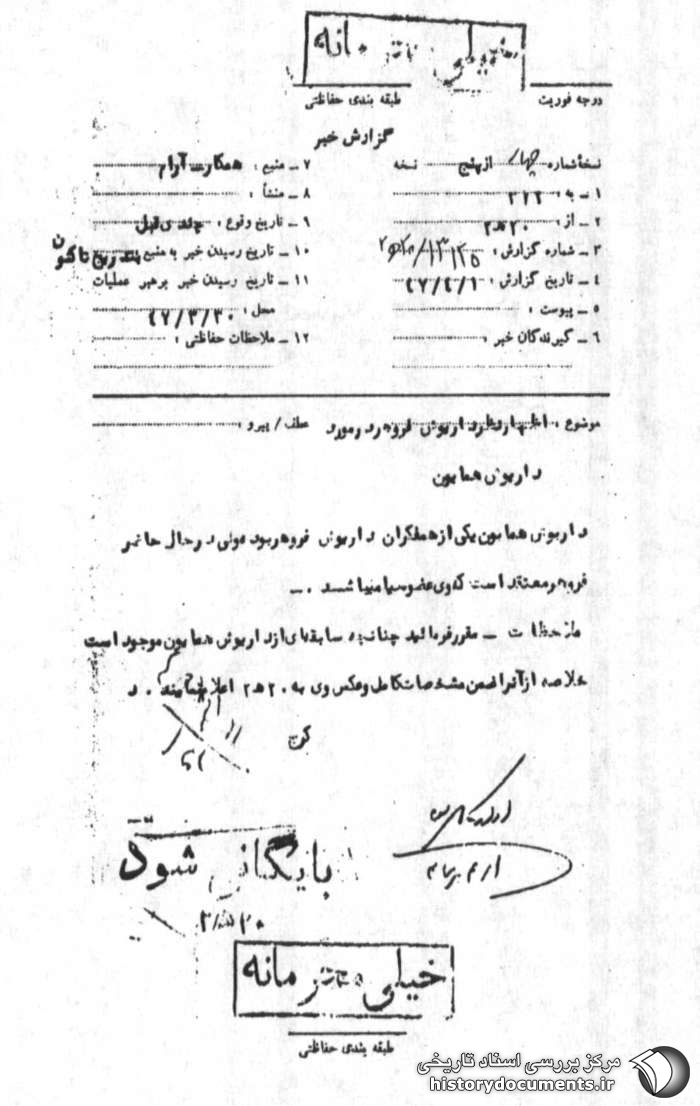 خیلی محرمانه
درجه فوریت
طبقه بندی حفاظتی
گزارش خبر
نسخه شماره چهار از پنج نسخه
۱ ـ به : ۳۲۲
۲ ـ از : ۲۰ ه‍ ۲
۳ ـ شماره گزارش :
۴ ـ تاریخ گزارش : ۴۷/۴/۱
۵ ـ پیوست :
۶ ـ گیرندگان خبر :
۷ ـ منبع : همکار ـ آرام
۸ ـ منشأ :
۹ ـ تاریخ وقوع : چندی قبل
۱۰ ـ تاریخ رسیدن خبر به منبع بتدریج تاکنون
۱۱ ـ تاریخ رسیدن خبر برهبر عملیات
محل : ۴۷/۳/۳۰
۱۲ ـ ملاحظات حفاظتی :
موضوع : اظهارنظر داریوش فروهر در مورد
عطف / پیرو :
داریوش همایون
داریوش همایون یکی از همفکران داریوش فروهر بود ولی در حال حاضر
فروهر معتقد است که وی عضو سیا میباشد . ـ
ملاحظات ـ مقرر فرمائید چنانچه سابقه‌ای از داریوش همایون موجود است
خلاصه از آنرا ضمن مشخصات کامل و عکس وی به ۲۰ ه‍ ۲ اعلام نمایند . د
بایگانی شود
خیلی محرمانه
طبقه بندی حفاظتی
مرکز بررسی اسناد تاریخی
historydocuments.ir